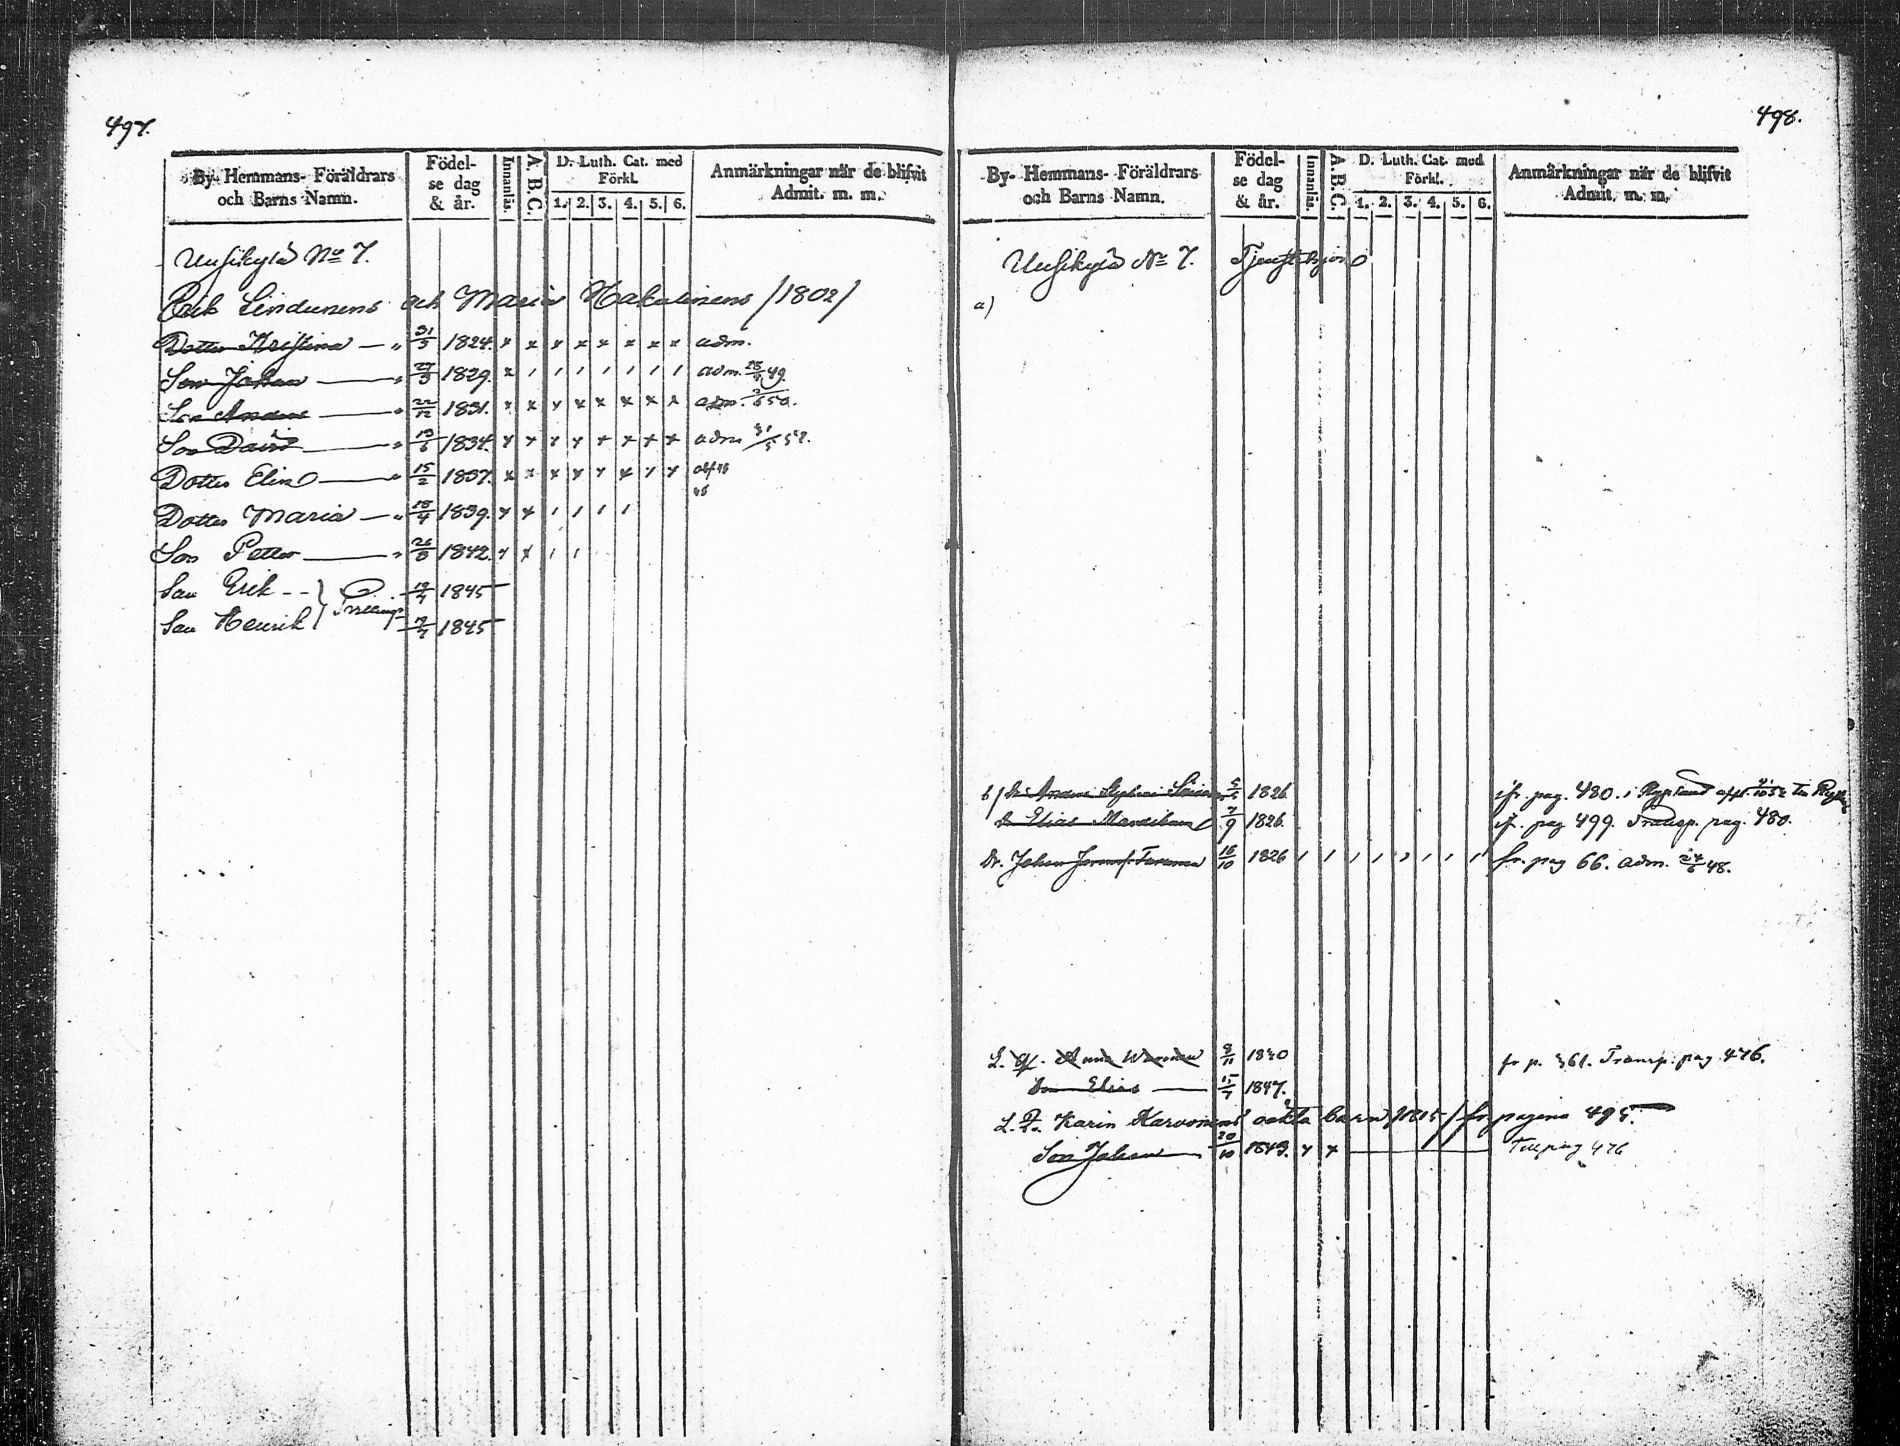 497.
By- Hemmans- Föräldrars och Barns Namn.
Födelse dag & år.
Innanläs.
A. B. C.
D. Luth. Cat. med Förkl.
1. 2. 3. 4. 5. 6.
Anmärkningar när de blifvit Admit. m. m.
Uusikylä No 7.
Erik Sinduinens och Maria Hakulinens /1802/
Dotter Kristina — " 31/3 1824. x x x x x x x x adm.
Son Johan — " 1829. x / / / / / / / adm. 49.
Son Anders — " 22/12 1831. x x x x x x x x adm. 50.
Son David — " 13/6 1834. x x x x x x x x adm 31/5 57.
Dotter Elin — " 15/2 1837. x x x x x x x x
Dotter Maria — " 18/4 1839. x x / / / /
Son Petter — " 26/8 1842. x x / /
Son Erik - - } 1845
Son Henrik } 1845
498.
By- Hemmans- Föräldrars och Barns Namn.
Födelse dag & år.
Innanläs.
A. B. C.
D. Luth. Cat. med Förkl.
1. 2. 3. 4. 5. 6.
Anmärkningar när de blifvit Admit. m. m.
Uusikylä No 7. Tjenstehjon
a)
b) Dr. Anders 1826. pag. 480. i
Dr Elias 7/9 1826. pag 499. Transp. pag. 480.
Dr. Johan 16/10 1826 / / / / / / / / fr. pag 66. adm. 24/6 48.
Anna 8/11 1840 fr p. 361. Transp. pag 476.
Son Elias — 15/7 1847.
Karin Karvonens oäkta barn /1815/ fr pagina 495.
Son Johan — 20/10 1843. x x — Till pag 476